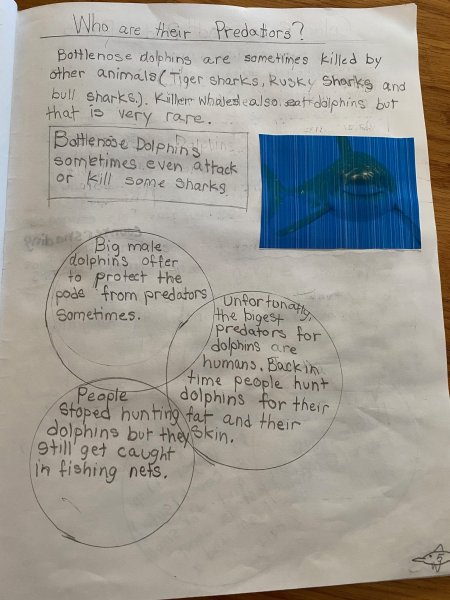 Who are their Predators?
Bottlenose dolphins are sometimes killed by
other animals (Tiger sharks, Rusky sharks and
bull sharks.). Killer whales also eat dolphins but
that is very rare.
Bottlenose Dolphins
sometimes even attack
or kill some sharks.
Big male
dolphins offer
to protect the
pods from predators
sometimes.
Unfortunatly,
the bigest
predators for
dolphins are
humans. Back in
time people hunt
dolphins for their
fat and their
skin.
People
stoped hunting
dolphins but they
still get caught
in fishing nets.
5